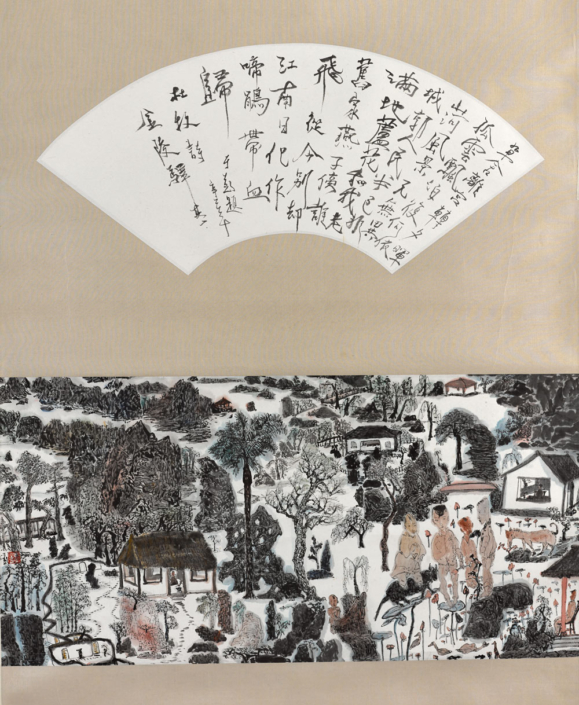 草合離宮轉夕暉
孤雲飄泊復何依
山河風景元無異
城郭人民半已非
滿地蘆花和我老
舊家燕子傍誰
飛從今別却
江南日化作
啼鵑帶血
歸
杜牧詩
金陵驛